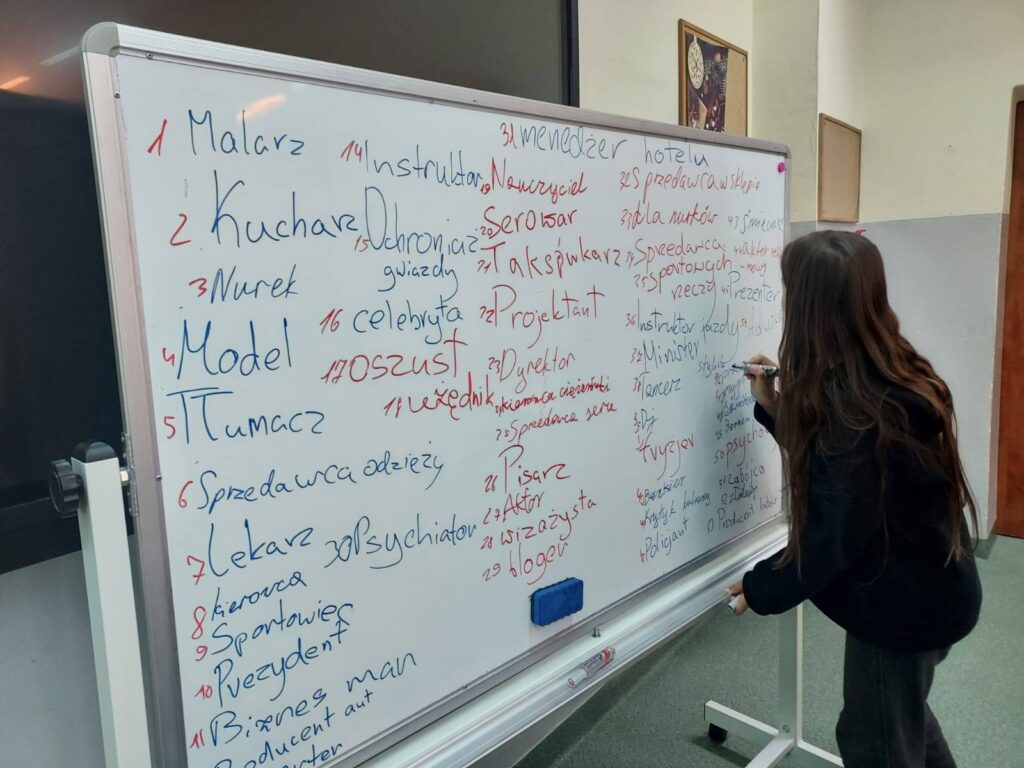 1 Malarz
2 Kucharz
3 Nurek
4 Model
5 Tłumacz
6 Sprzedawca odzięży
7 Lekarz
8 kierowca
9 Sportowiec
10 Prezydent
11 Biznes man
Producent aut
14 Instruktor
15 Ochroniaż
gwiazdy
16 celebryta
17 oszust
18 użędnik
30 Psychiator
31 menedżer hotelu
19 Nauczyciel
20 Serowar
21 Taksówkarz
22 Projektant
23 Dyrektor
24 kierowca ciężarówki
25 Sprzedawca sera
26 Pisarz
27 Aktor
28 wizażysta
29 bloger
32 Sprzedawca w sklepie
dla nurków
Sprzedawca
sportowych
rzeczy
36 Instruktor jazdy
37 Minister
Tancerz
Dj
fryzjer
Krytyk kulinarny
Policjant
43 śmieciarz
aktor
Prezenter
stylist
50 psycho
Producent